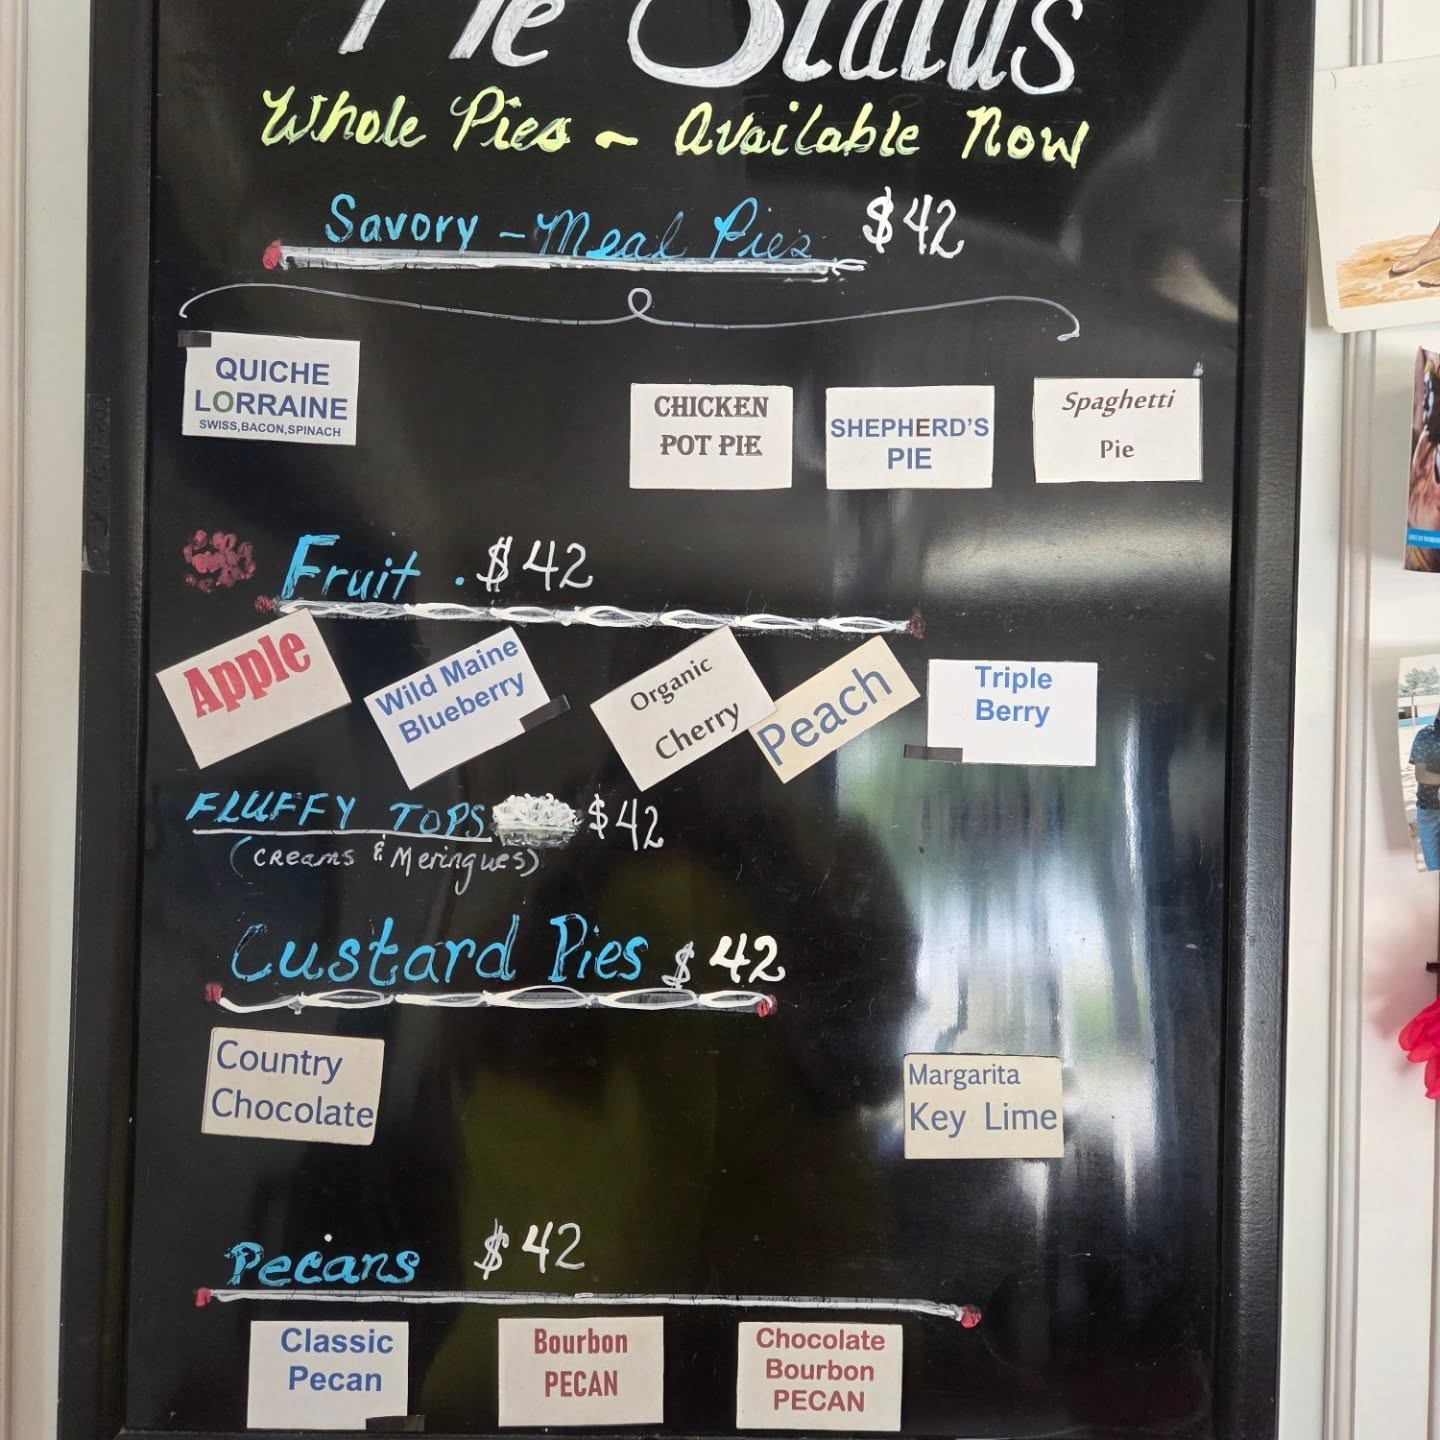 Pie Status
Whole Pies ~ Available Now
Savory - Meal Pies $42
QUICHE
LORRAINE
SWISS,BACON,SPINACH
CHICKEN
POT PIE
SHEPHERD'S
PIE
Spaghetti
Pie
Fruit . $42
Apple
Wild Maine
Blueberry
Organic
Cherry
Peach
Triple
Berry
FLUFFY TOPS $42
(Creams & Meringues)
Custard Pies $42
Country
Chocolate
Margarita
Key Lime
Pecans $42
Classic
Pecan
Bourbon
PECAN
Chocolate
Bourbon
PECAN